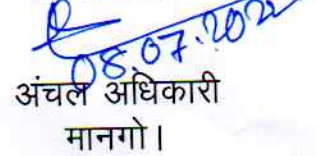 08.07.202
अंचल अधिकारी
मानगो।